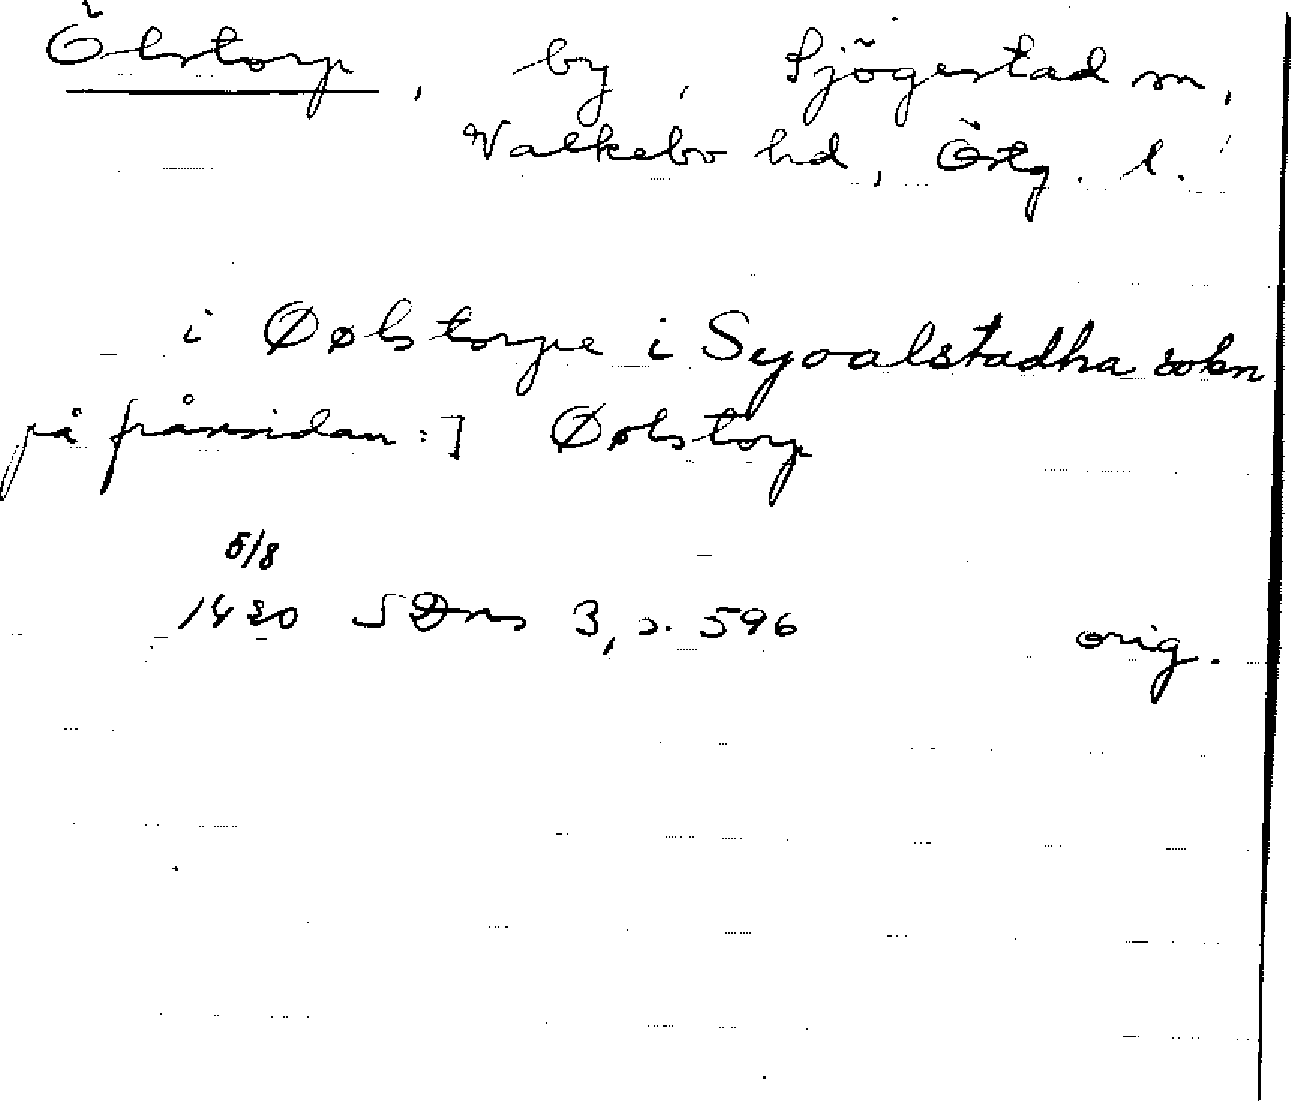 Ölstorp, by, Sjögestad sn,
Valkebo hd, Östg. l.
i Øølstorpe i Syoalstadha sokn
på frånsidan:] Øølstorp
5/8
1420 SDns 3, s. 596 orig.